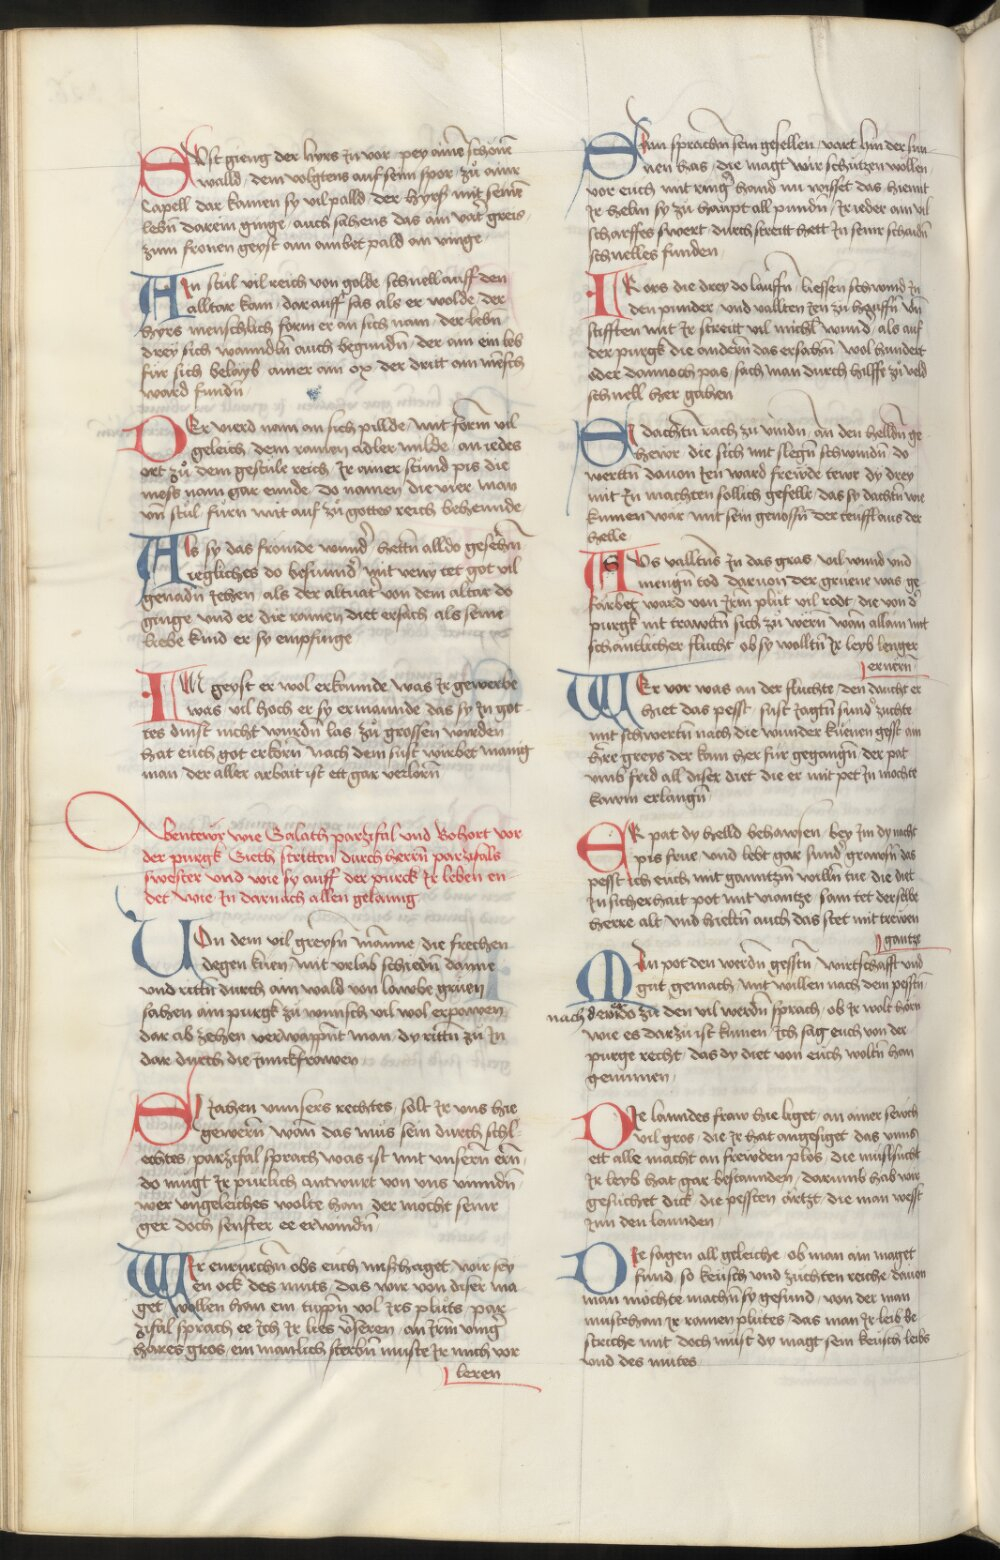 Sust gieng der hyrs In vor · pey aime schone
walld · dem volgtens auf sein spor · zů ainr
Capell dar kamen sy vil palld · der hyrs mit seinen
leben darein ginge · auch sahens das ain vatr greis ·
zum fronen geyst am ambet pald an vinge
Ain stul vil reich von golde schnell auff den
alltar kam · dar auff sas als er wolde · der
hyrs menschlich form er an sich nam · der leben
drey sich wanndln auch begundn · der ain ein leb
für sich belayb ainer ain ox der dritt ain mensch
ward fundn
Der vierd nam an sich pillde · mit form vil
geleich dem ramen adler milde · an iedes
ort zů dem gestüle reich · Ir ainer stund pis die
mess nam gar ennde · do namen die vier man
vn̄ stul · furn mit auf zů gottes reich behennde
Als sy das fromde wund' · hettn alldo gesehn
iegliches do besunnd' · mit veny tet got vil
genadn Iehen · als der altuat von dem altar do
ginge · und er die ramen diet ersach als seine
liebe kind er sy empfinge
Im geyst er wol erkannde · was Ir gewerbe
was · vil hoch er sy ermannde · das sy In got
tes dinst nicht wurdn las · zů grossen wirden
hat euch got erkorn · nach dem sust wirbet manig
man · der aller arbait ist ett gar verlorn
Abentewr wie Galath parzifal und Bohort vor
der purgk Gieth stritten durch herrn parzifals
swester und wie sy auff der purck Ir leben en
det wie In darnach allen gelanng
Von dem vil greysn manne · die frechen
degen kuen · mit vrlab schiedn danne
und rittn durch ain wald von lawbe gruen
sahen ain purgk zů wunsch vil wol erpowen ·
dar ab zehen verwappnt man · dy rittn zů In
dar durch die junckfrowen
Sy Iahen vnnsers rechtes · solt Ir uns hie
gewern · wan das mus sein durch schl=
echtes · parzifal sprach was ist mit unsern ern
do mügt Ir pirlich antwurt von uns vinndn
wer ungeleiches wolte han · der mocht seinr
ger doch senfter ee erwindn
Wir enruechn obs euch misshaget · wir sey
en ock des muts · das wir von diser ma
get · wollen han ein tuppn vol Irs pluets · par
zifal sprach ee Ich Ir lies verseren · an Irm ving'
hares gros · ein manlich sterbn müste Ir mich vor
leren
Sun sprachn sein gesellen · vart hin der sun
nen has · die magt wir schützen wollen ·
vor euch mit ring' hand nu wisset das · hiemit
Ir helm sy zů haupt all pundn · Ir ieder ain vil
scharffes swert durch streitt hett In seinr schaidn
schnelles funden
Ir ors die drey do lauffn · liessen schwind In
den punder · und vallten Ien zů hauffn vn̄
stifften mit Ir streitt vil michl wund · als auf
der purgk die andern das ersachn · wol hundert
oder dannoch pas · sach man durch hilffe zů veld
schnell her gahen
Si dachtn rach zů vindn · an den helldn ge
hewr · die sich mit slegn schwindn · do
wertn dauon Ien ward frewde tewr · dy drey
mit In machten sollich geselle · das sy dachtn wie
kumen war mit sein genossn der teuffl aus der
helle
Als valltns In das gras · vil wund und
mengn tod · daruon der gruene was ge
farbet ward von Irm plut vil rodt · die von d'
purgk nit trawtn sich zů wern · wan allain mit
schantlicher flucht · ob sy wolltn Ir leyb lenger
ernern
Wer vor was an der fluchte · den daucht er
hiet das pesst · sust Iagtn sund' züchte
mit schwertn nach die wunder kuenen gesst · ain
here greys der kam her für gegangn · der pat
umb frid all diser diet · die er mit pet In mochte
kawm erlangn
Er pat dy helld behawsen · bey Im dy nacht
pis frue · und lebt gar sund' grawsn · das
pesst ich euch mit ganntzm willn tue · die diet
In sicherhait pot mit wantze · sam tet derselbe
herre alt · und hieltn auch das stet mit trewen
gantze
Man pot den werdn gesstn · wirtschafft und
gut gemach · mit willen nach dem pesstn
nach der wid zů den vil werdn sprach · ob Ir wolt horn
wie es darzů ist kumen · Ich sag euch von der
purge recht · das dy diet von euch woltn han
genummen ·
Die lanndes fraw hie liget · an ainer sewch
vil gros · die Ir hat angesiget · das unns
ett alle macht an frewden plos · die mislsucht
Ir leyb hat gar bestannden · darumb hab wir
gesuchet dick · die pessten ärtzt · die man wesst
Inn den lannden ·
Die sagen all geleiche · ob man ain maget
fund · so keusch und züchten reiche · dauon
man mochte machn sy gesund · von der man
mustehan Ir ramen plutes · das man Ir leib be
striche mit · doch must dy magt sein keusch leibs
und des mutes